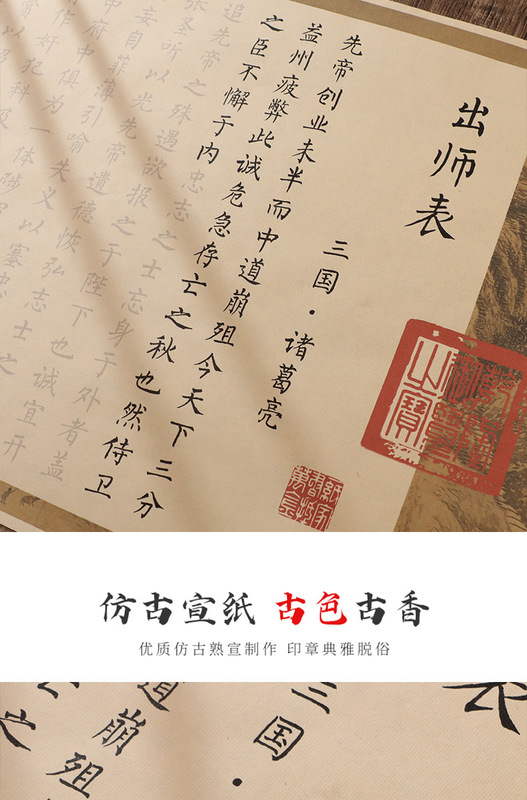 出师表
三国·诸葛亮
先帝创业未半而中道崩殂今天下三分
益州疲弊此诚危急存亡之秋也然侍卫
之臣不懈于内忠志之士忘身于外者盖
追先帝之殊遇欲报之于陛下也诚宜开
张圣听以光先帝遗德恢弘志士之
妄自菲薄引喻失义以塞忠
中府中俱为一体陟
作奸犯科及
仿古宣纸 古色古香
优质仿古熟宣制作 印章典雅脱俗
表
三国·
道崩殂
之